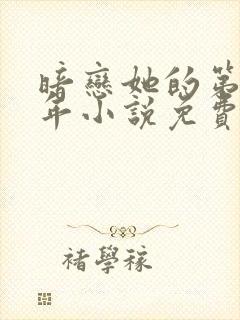 暗戀她的第
年小說免費
褚學稼